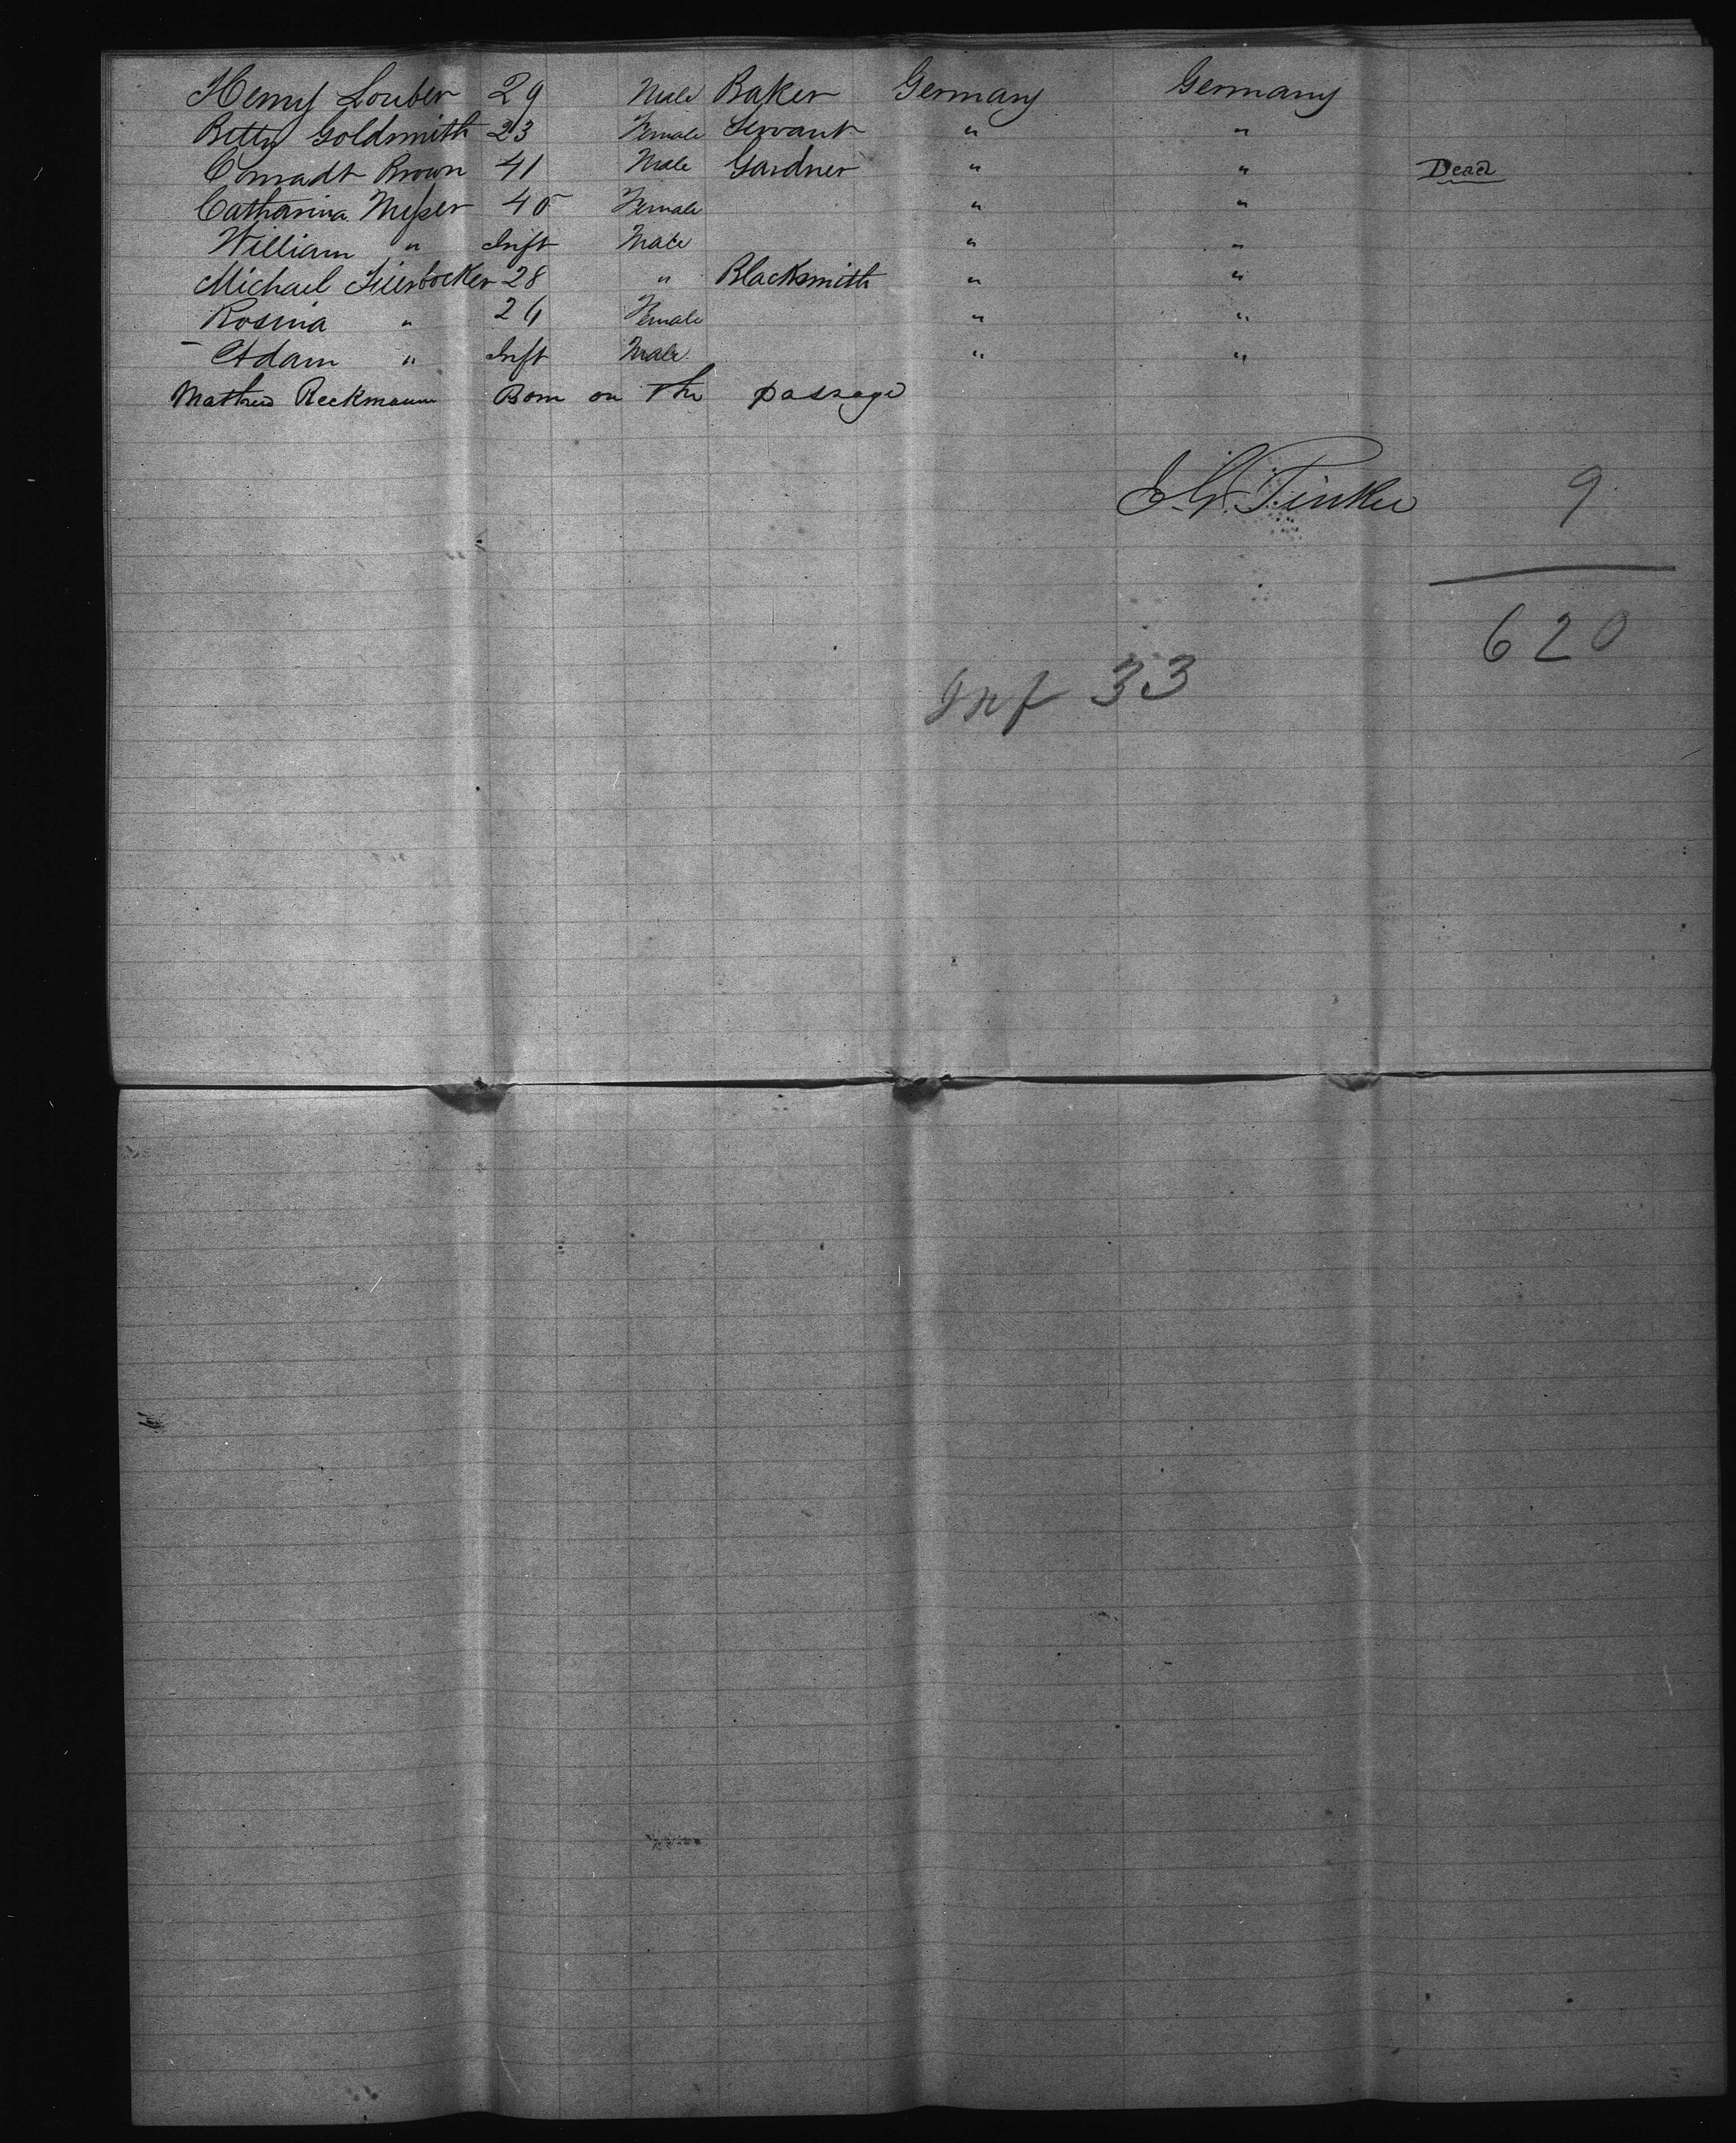 Henry Louber 29 Male Baker Germany Germany
Betty Goldsmith 23 Female Servant " "
Conradt Brown 41 Male Gardner " " Dead
Catharina 40 Female " "
William " Inft Male " "
Michael 28 " Blacksmith " "
Rosina " 26 Female " "
Adam " Inft Male " "
Mathew Reckmann Born on the passage
Tinker 9
620
Inf 33